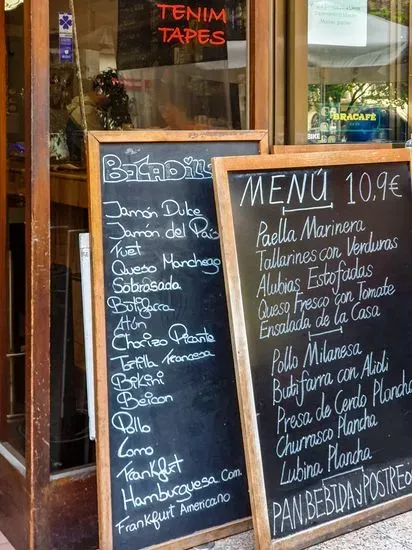 TENIM
TAPES
BRACAFÉ
BIKE
BOCADILL
Jamón Dulce
Jamón del País
Fuet
Queso Manchego
Sobrasada
Butifarra
Atún
Chorizo Picante
Tortilla Francesa
Bikini
Beicon
Pollo
Lomo
Frankfurt
Hamburguesa Com
Frankfurt Americano
MENÚ 10,9€
Paella Marinera
Tallarines con Verduras
Alubias Estofadas
Queso Fresco con Tomate
Ensalada de la Casa
Pollo Milanesa
Butifarra con Alioli
Presa de Cerdo Plancha
Churrasco Plancha
Lubina Plancha
PAN, BEBIDA y POSTRE ó